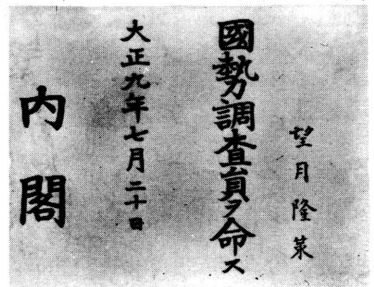 望月隆菜
國勢調査員ヲ命ス
大正九年七月二十日
内閣